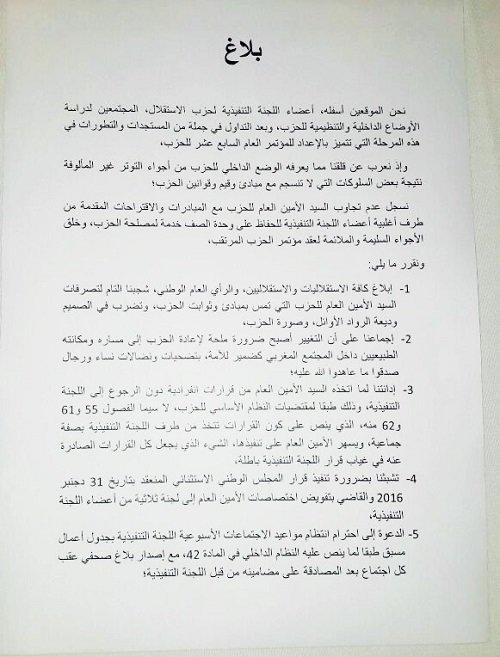 بلاغ
نحن الموقعين أسفله، أعضاء اللجنة التنفيذية لحزب الاستقلال، المجتمعين لدراسة
الأوضاع الداخلية والتنظيمية للحزب، وبعد التداول في جملة من المستجدات والتطورات في
هذه المرحلة التي تتميز بالإعداد للمؤتمر العام السابع عشر للحزب،
وإذ نعرب عن قلقنا مما يعرفه الوضع الداخلي للحزب من أجواء التوتر غير المألوفة
نتيجة بعض السلوكات التي لا تنسجم مع مبادئ وقيم وقوانين الحزب؛
نسجل عدم تجاوب السيد الأمين العام للحزب مع المبادرات والاقتراحات المقدمة من
طرف أغلبية أعضاء اللجنة التنفيذية للحفاظ على وحدة الصف خدمة لمصلحة الحزب، وخلق
الأجواء السليمة والملائمة لعقد مؤتمر الحزب المرتقب،
ونقرر ما يلي:
1- إبلاغ كافة الاستقلاليات والاستقلاليين، والرأي العام الوطني، شجبنا التام لتصرفات
السيد الأمين العام للحزب التي تمس بمبادئ وثوابت الحزب، وتضرب في الصميم
وديعة الرواد الأوائل، وصورة الحزب،
2- إجماعنا على أن التغيير أصبح ضرورة ملحة لإعادة الحزب إلى مساره ومكانته
الطبيعيين داخل المجتمع المغربي كضمير للأمة، بتضحيات ونضالات نساء ورجال
صدقوا ما عاهدوا الله عليه؛
3- إدانتنا لما اتخذه السيد الأمين العام من قرارات انفرادية دون الرجوع إلى اللجنة
التنفيذية، وذلك طبقا لمقتضيات النظام الأساسي للحزب، لا سيما الفصول 55 و61
و62 منه، الذي ينص على كون القرارات تتخذ من طرف اللجنة التنفيذية بصفة
جماعية، ويسهر الأمين العام على تنفيذها، الشيء الذي يجعل كل القرارات الصادرة
عنه في غياب قرار اللجنة التنفيذية باطلة،
4- تشبثنا بضرورة تنفيذ قرار المجلس الوطني الاستثنائي المنعقد بتاريخ 31 دجنبر
2016 والقاضي بتفويض اختصاصات الأمين العام إلى لجنة ثلاثية من أعضاء اللجنة
التنفيذية،
5- الدعوة إلى احترام انتظام مواعيد الاجتماعات الأسبوعية اللجنة التنفيذية بجدول أعمال
مسبق طبقا لما ينص عليه النظام الداخلي في المادة 42، مع إصدار بلاغ صحفي عقب
كل اجتماع بعد المصادقة على مضامينه من قبل اللجنة التنفيذية؛